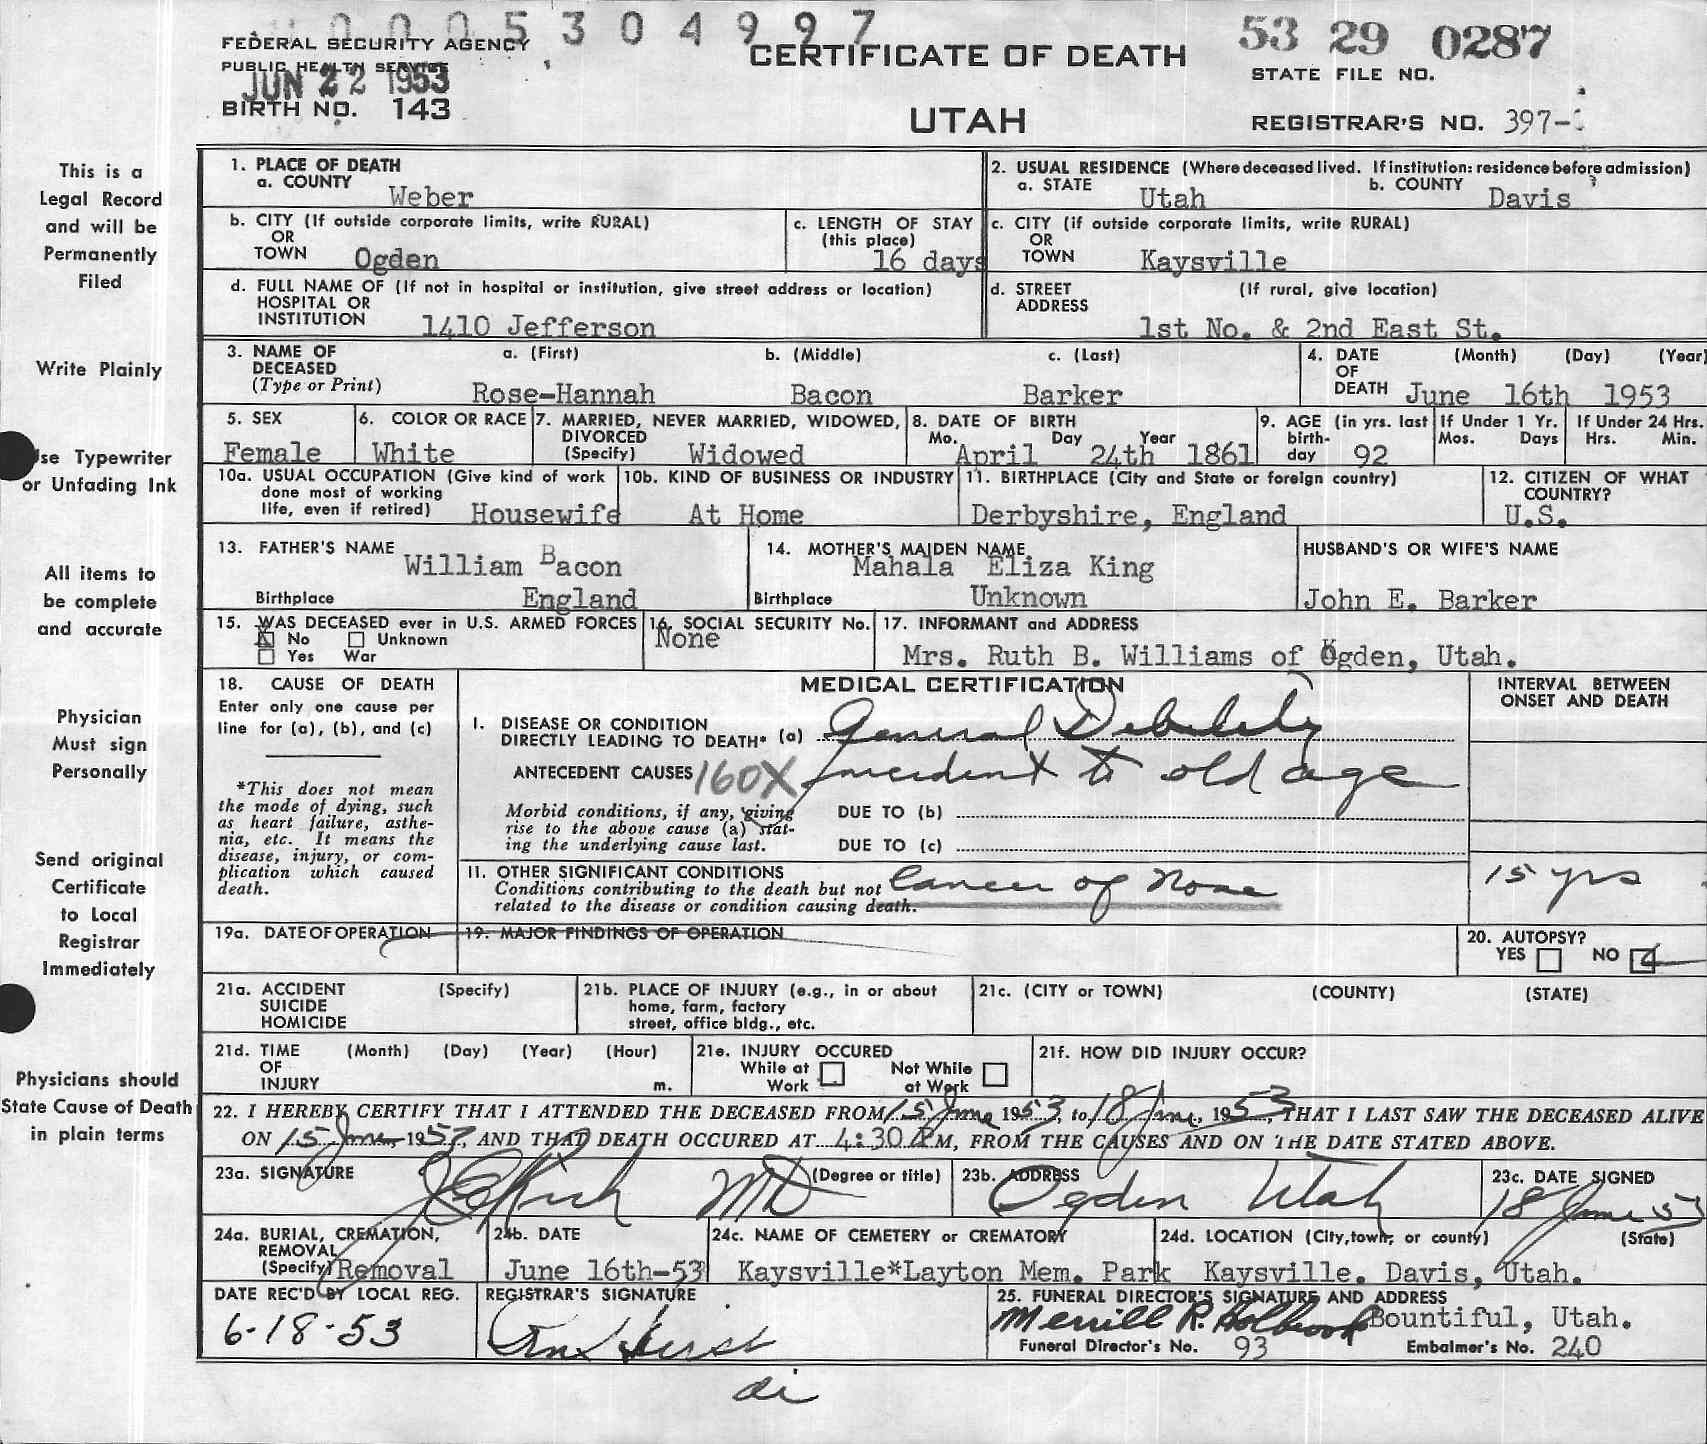 0005304997
FEDERAL SECURITY AGENCY
PUBLIC HEALTH SERVICE
JUN 22 1953
BIRTH NO. 143
CERTIFICATE OF DEATH
UTAH
53 29 0287
STATE FILE NO.
REGISTRAR'S NO. 397-
This is a
Legal Record
and will be
Permanently
Filed
Write Plainly
Use Typewriter
or Unfading Ink
All items to
be complete
and accurate
Physician
Must sign
Personally
Send original
Certificate
to Local
Registrar
Immediately
Physicians should
State Cause of Death
in plain terms
1. PLACE OF DEATH
a. COUNTY Weber
2. USUAL RESIDENCE (Where deceased lived. If institution: residence before admission)
a. STATE Utah b. COUNTY Davis
b. CITY (If outside corporate limits, write RURAL)
OR
TOWN Ogden
c. LENGTH OF STAY
(this place)
16 days
c. CITY (if outside corporate limits, write RURAL)
OR
TOWN Kaysville
d. FULL NAME OF (If not in hospital or institution, give street address or location)
HOSPITAL OR
INSTITUTION 1410 Jefferson
d. STREET (If rural, give location)
ADDRESS
1st No. & 2nd East St.
3. NAME OF a. (First) b. (Middle) c. (Last)
DECEASED
(Type or Print) Rose-Hannah Bacon Barker
4. DATE (Month) (Day) (Year)
OF
DEATH June 16th 1953
5. SEX
Female
6. COLOR OR RACE
White
7. MARRIED, NEVER MARRIED, WIDOWED,
DIVORCED
(Specify) Widowed
8. DATE OF BIRTH
Mo. Day Year
April 24th 1861
9. AGE (in yrs. last
birth-
day 92
If Under 1 Yr.
Mos. Days
If Under 24 Hrs.
Hrs. Min.
10a. USUAL OCCUPATION (Give kind of work
done most of working
life, even if retired) Housewife
10b. KIND OF BUSINESS OR INDUSTRY
At Home
11. BIRTHPLACE (City and State or foreign country)
Derbyshire, England
12. CITIZEN OF WHAT
COUNTRY?
U.S.
13. FATHER'S NAME
William Bacon
Birthplace England
14. MOTHER'S MAIDEN NAME
Mahala Eliza King
Birthplace Unknown
HUSBAND'S OR WIFE'S NAME
John E. Barker
15. WAS DECEASED ever in U.S. ARMED FORCES
X No Unknown
Yes War
16. SOCIAL SECURITY No.
None
17. INFORMANT and ADDRESS
Mrs. Ruth B. Williams of Ogden, Utah.
18. CAUSE OF DEATH
Enter only one cause per
line for (a), (b), and (c)
*This does not mean
the mode of dying, such
as heart failure, asthe-
nia, etc. It means the
disease, injury, or com-
plication which caused
death.
MEDICAL CERTIFICATION
INTERVAL BETWEEN
ONSET AND DEATH
I. DISEASE OR CONDITION
DIRECTLY LEADING TO DEATH* (a) General Debility
ANTECEDENT CAUSES 160X incident to old age
Morbid conditions, if any, giving
rise to the above cause (a) stat-
ing the underlying cause last.
DUE TO (b)
DUE TO (c)
11. OTHER SIGNIFICANT CONDITIONS
Conditions contributing to the death but not
related to the disease or condition causing death.
Cancer of Nose
15 yrs
19a. DATE OF OPERATION
19. MAJOR FINDINGS OF OPERATION
20. AUTOPSY?
YES NO
21a. ACCIDENT (Specify)
SUICIDE
HOMICIDE
21b. PLACE OF INJURY (e.g., in or about
home, farm, factory
street, office bldg., etc.
21c. (CITY or TOWN) (COUNTY) (STATE)
21d. TIME (Month) (Day) (Year) (Hour)
OF
INJURY m.
21e. INJURY OCCURED
While at Work
Not While at Work
21f. HOW DID INJURY OCCUR?
22. I HEREBY CERTIFY THAT I ATTENDED THE DECEASED FROM 15 June 1953, to 18 June, 1953, THAT I LAST SAW THE DECEASED ALIVE
ON 15 June, 1953, AND THAT DEATH OCCURED AT 4:30 PM, FROM THE CAUSES AND ON THE DATE STATED ABOVE.
23a. SIGNATURE (Degree or title)
Rich MD
23b. ADDRESS
Ogden Utah
23c. DATE SIGNED
18 June 53
24a. BURIAL, CREMATION,
REMOVAL
(Specify) Removal
24b. DATE
June 16th-53
24c. NAME OF CEMETERY or CREMATORY
Kaysville*Layton Mem. Park
24d. LOCATION (City, town, or county) (State)
Kaysville. Davis, Utah.
DATE REC'D BY LOCAL REG.
6-18-53
REGISTRAR'S SIGNATURE
25. FUNERAL DIRECTOR'S SIGNATURE AND ADDRESS
Merrill R. Holbrook Bountiful, Utah.
Funeral Director's No. 93 Embalmer's No. 240